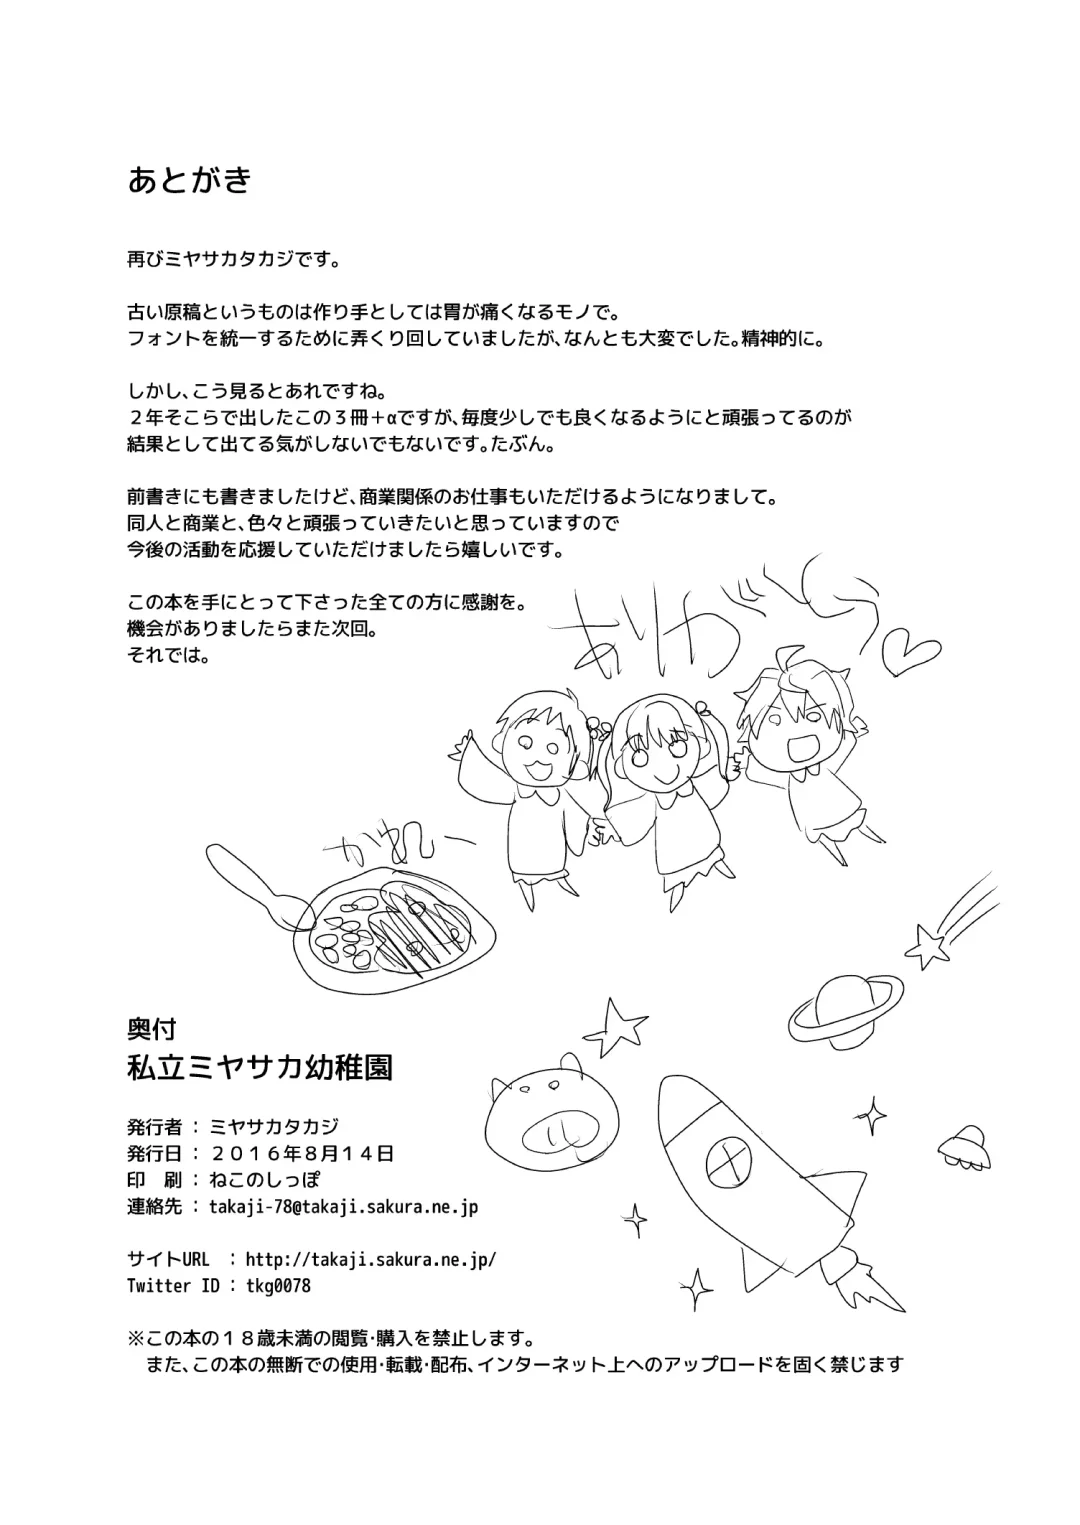 あとがき
再びミヤサカタカジです。
古い原稿というものは作り手としては胃が痛くなるモノで。
フォントを統一するために弄くり回していましたが、なんとも大変でした。精神的に。
しかし、こう見るとあれですね。
２年そこらで出したこの３冊＋αですが、毎度少しでも良くなるようにと頑張ってるのが
結果として出てる気がしないでもないです。たぶん。
前書きにも書きましたけど、商業関係のお仕事もいただけるようになりまして。
同人と商業と、色々と頑張っていきたいと思っていますので
今後の活動を応援していただけましたら嬉しいです。
この本を手にとって下さった全ての方に感謝を。
機会がありましたらまた次回。
それでは。
ありがとう♡
かれー
奥付
私立ミヤサカ幼稚園
発行者 ： ミヤサカタカジ
発行日 ： ２０１６年８月１４日
印　刷 ： ねこのしっぽ
連絡先 ： takaji-78@takaji.sakura.ne.jp
サイトURL ： http://takaji.sakura.ne.jp/
Twitter ID ： tkg0078
※この本の１８歳未満の閲覧・購入を禁止します。
また、この本の無断での使用・転載・配布、インターネット上へのアップロードを固く禁じます